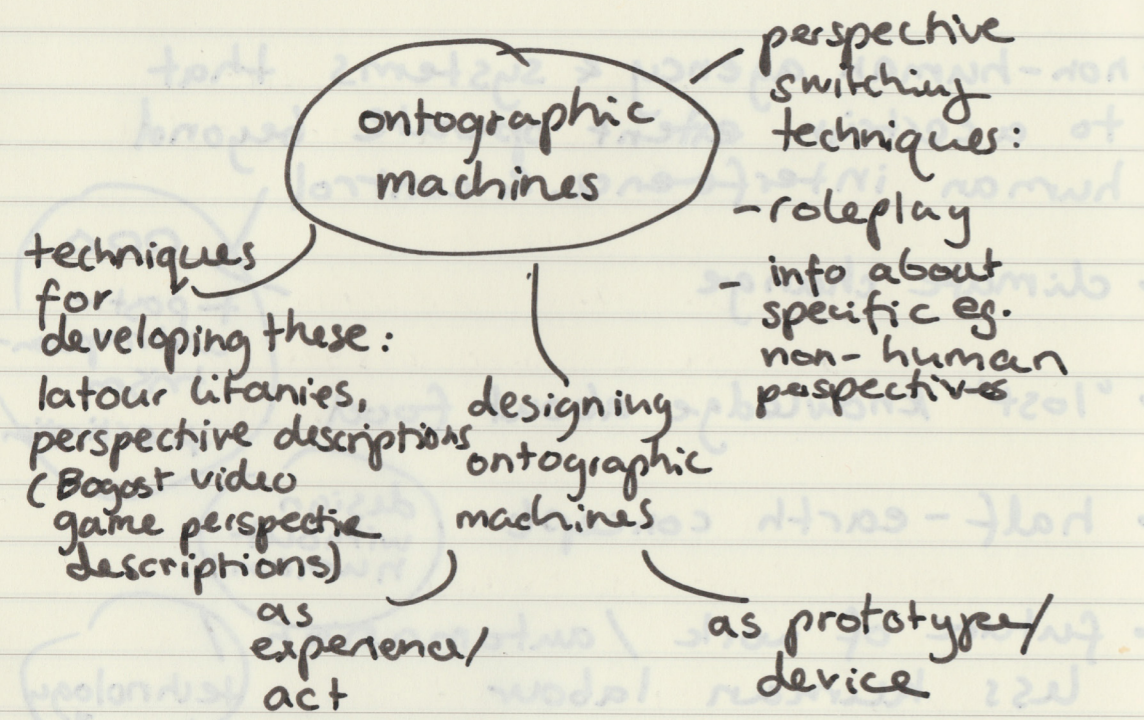 ontographic
machines
perspective
switching
techniques:
- roleplay
- info about
specific eg.
non-human
perspectives
techniques
for
developing these:
latour litanies,
perspective descriptions
(Bogost video
game perspectie
descriptions)
designing
ontographic
machines
as
experience/
act
as prototype/
device